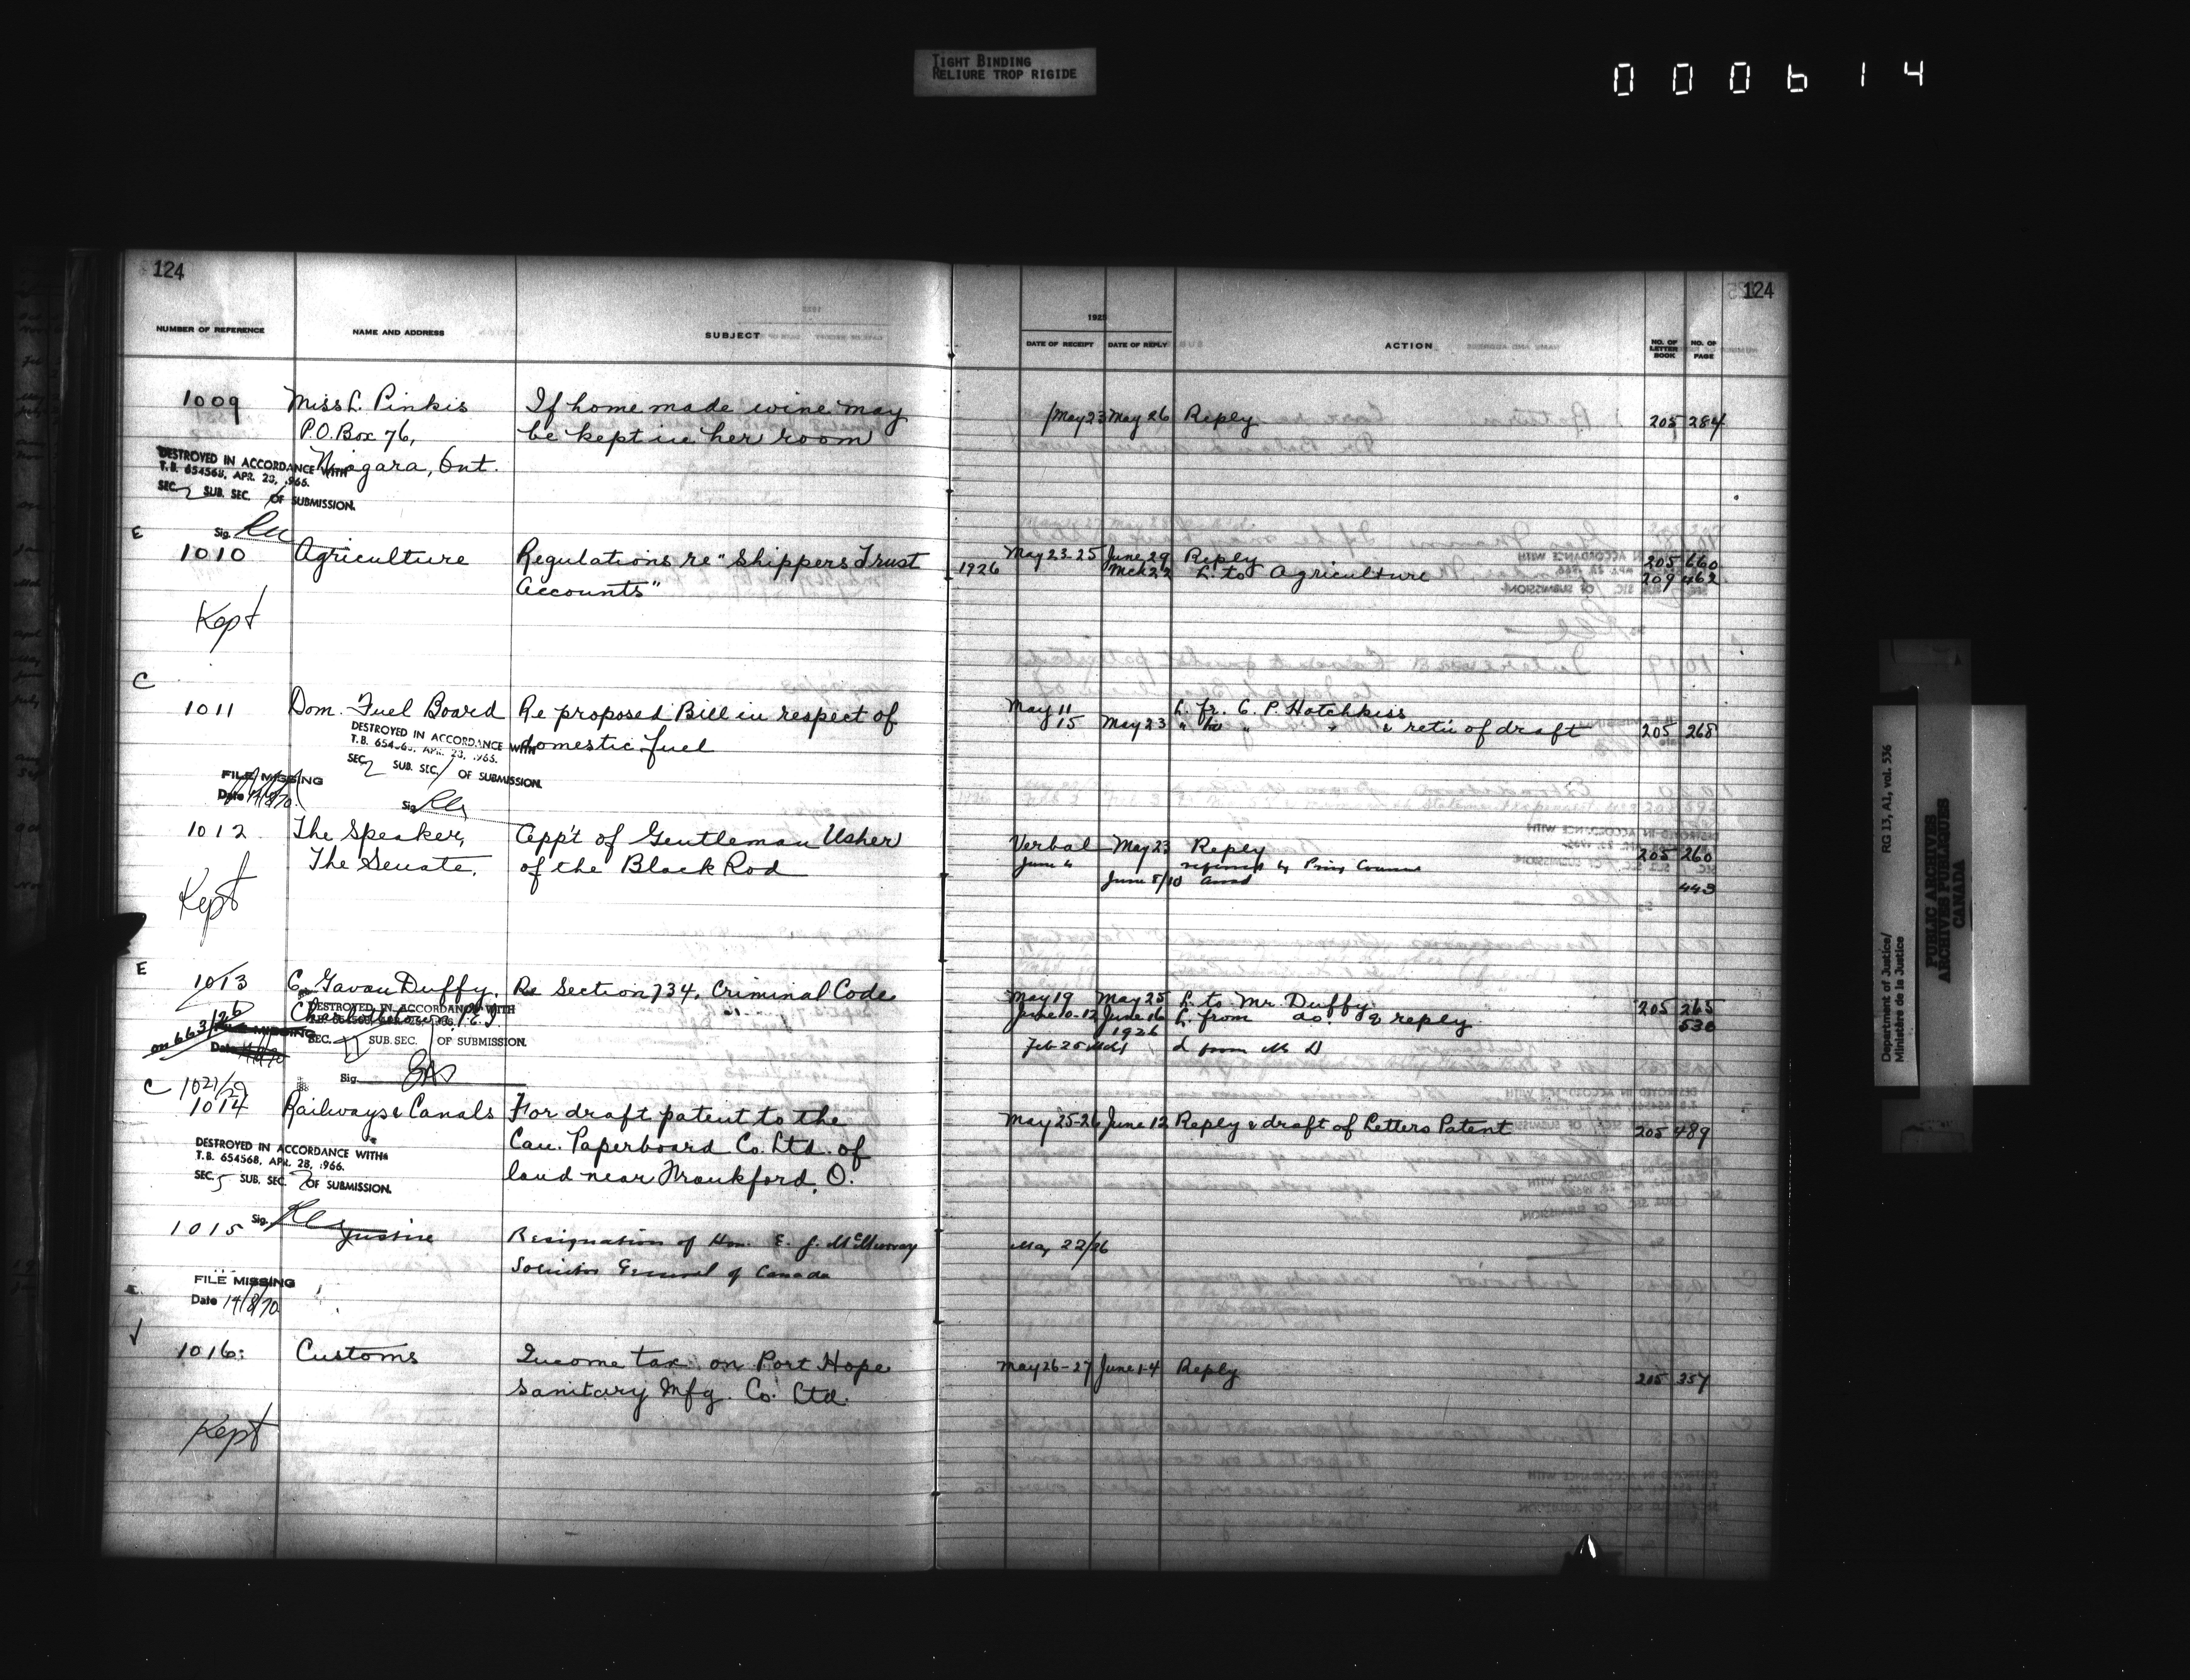 TIGHT BINDING
RELIURE TROP RIGIDE
000614
124
124
NUMBER OF REFERENCE
NAME AND ADDRESS
SUBJECT
1925
DATE OF RECEIPT
DATE OF REPLY
ACTION
NO. OF LETTER BOOK
NO. OF PAGE
1009 Miss L. Pinkis If home made wine may May 23 May 26 Reply 205 284
P.O. Box 76, be kept in her room
Niagara, Ont.
DESTROYED IN ACCORDANCE WITH
T.B. 654568, APR. 28, 1966.
SEC. 2 SUB. SEC. OF SUBMISSION.
Sig.
E
1010 Agriculture Regulations re "Shippers Trust May 23-25 June 29 Reply 205 660
Accounts" 1926 Mch 22 L. to Agriculture 209 462
Kept
C
1011 Dom. Fuel Board Re proposed Bill in respect of May 11 L. fr. C. P. Hotchkiss
domestic fuel 15 May 23 " to " " & retu of draft 205 268
DESTROYED IN ACCORDANCE WITH
T.B. 654568, APR. 28, 1966.
SEC. 2 SUB. SEC. / OF SUBMISSION.
FILE MISSING
Date 14/8/70
Sig.
1012 The Speaker, App't of Gentleman Usher Verbal May 23 Reply 205 260
The Senate. of the Black Rod June 4 referred by Privy Council
June 8/10 443
Kept
E
1013 C. Gavan Duffy, Re Section 734, Criminal Code May 19 May 25 L. to Mr. Duffy 205 265
Charlottetown, P.E.I. June 10-12 June 16 L. from do. & reply 530
1926
Feb 25 Mch 1 L from Mr D
on 663/26
DESTROYED IN ACCORDANCE WITH
SEC. SUB. SEC. OF SUBMISSION.
FILE MISSING
Date
Sig.
C 1021/29
1014 Railways & Canals For draft patent to the May 25-26 June 12 Reply & draft of Letters Patent 205 489
Can. Paperboard Co. Ltd. of
land near Frankford, O.
DESTROYED IN ACCORDANCE WITH
T.B. 654568, APR. 28, 1966.
SEC. 5 SUB. SEC. 2 OF SUBMISSION.
Sig.
1015 Justice Resignation of Hon. E. J. McMurray May 22/26
Solicitor General of Canada
FILE MISSING
Date 14/8/70
E
1016 Customs Income tax on Port Hope May 26-27 June 1-4 Reply 205 357
Sanitary Mfg. Co. Ltd.
Kept
Department of Justice/
Ministère de la Justice
RG 13, A1, vol. 536
PUBLIC ARCHIVES
ARCHIVES PUBLIQUES
CANADA